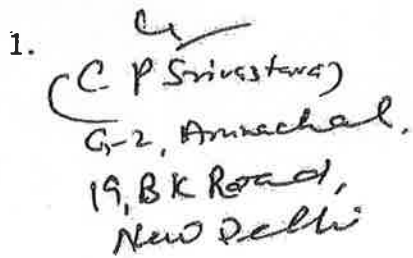 1.
(C P Srivastava)
G-2, Arunachal,
19, B K Road,
New Delhi